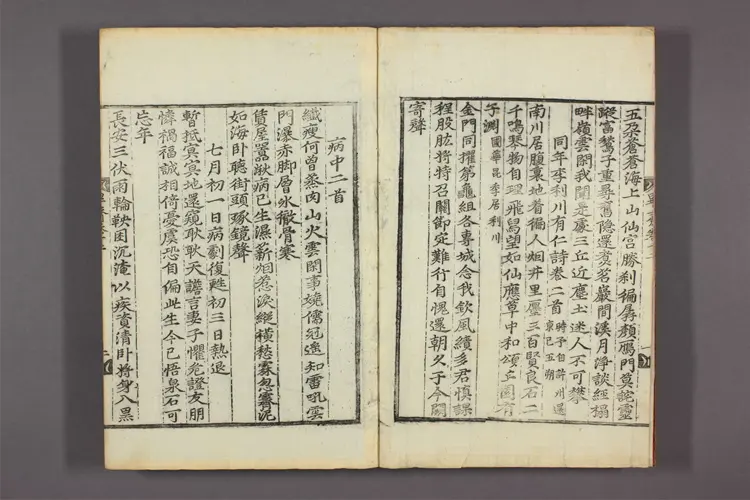 五朶蒼蒼海上山仙宮勝刹徧孱顔鴈門莫詑靈
蹤富鷲子重尋舊隱還煑茗巖間溪月淨談經榻
畔嶺雲閑我聞定慶三丘近塵土迷人不可攀
同年李利川有仁詩卷二首
南川居腹裏地着徧人烟井里廛三百賢良石二
千鳴琴物自理飛舄望如仙應草中和頌立國有
子淵國華昆季居利川
金門同擢第龜組各專城念我欽風績多君慎課
程股肱將特召關節定難行自愧還朝久于今闕
寄聲
病中二首
纖瘦何曾蒸肉山火雲閑事嬈儒冠遙知雷吼雲
門瀑赤脚層氷徹骨寒
賃屋囂湫病已生濕薪烟惹淚縱橫愁霖忽霽泥
如海卧聽街頭琢鏡聲
七月初一日病劇復甦初三日熱退
暫抵冥冥地還窺耿耿天譫言妻子懼危證友朋
憐禍福誠相倚憂虞恐自偏此生今已悟泉石可
忘年
長安三伏雨輪鞅困沉淹以疾資清卧將身八黑